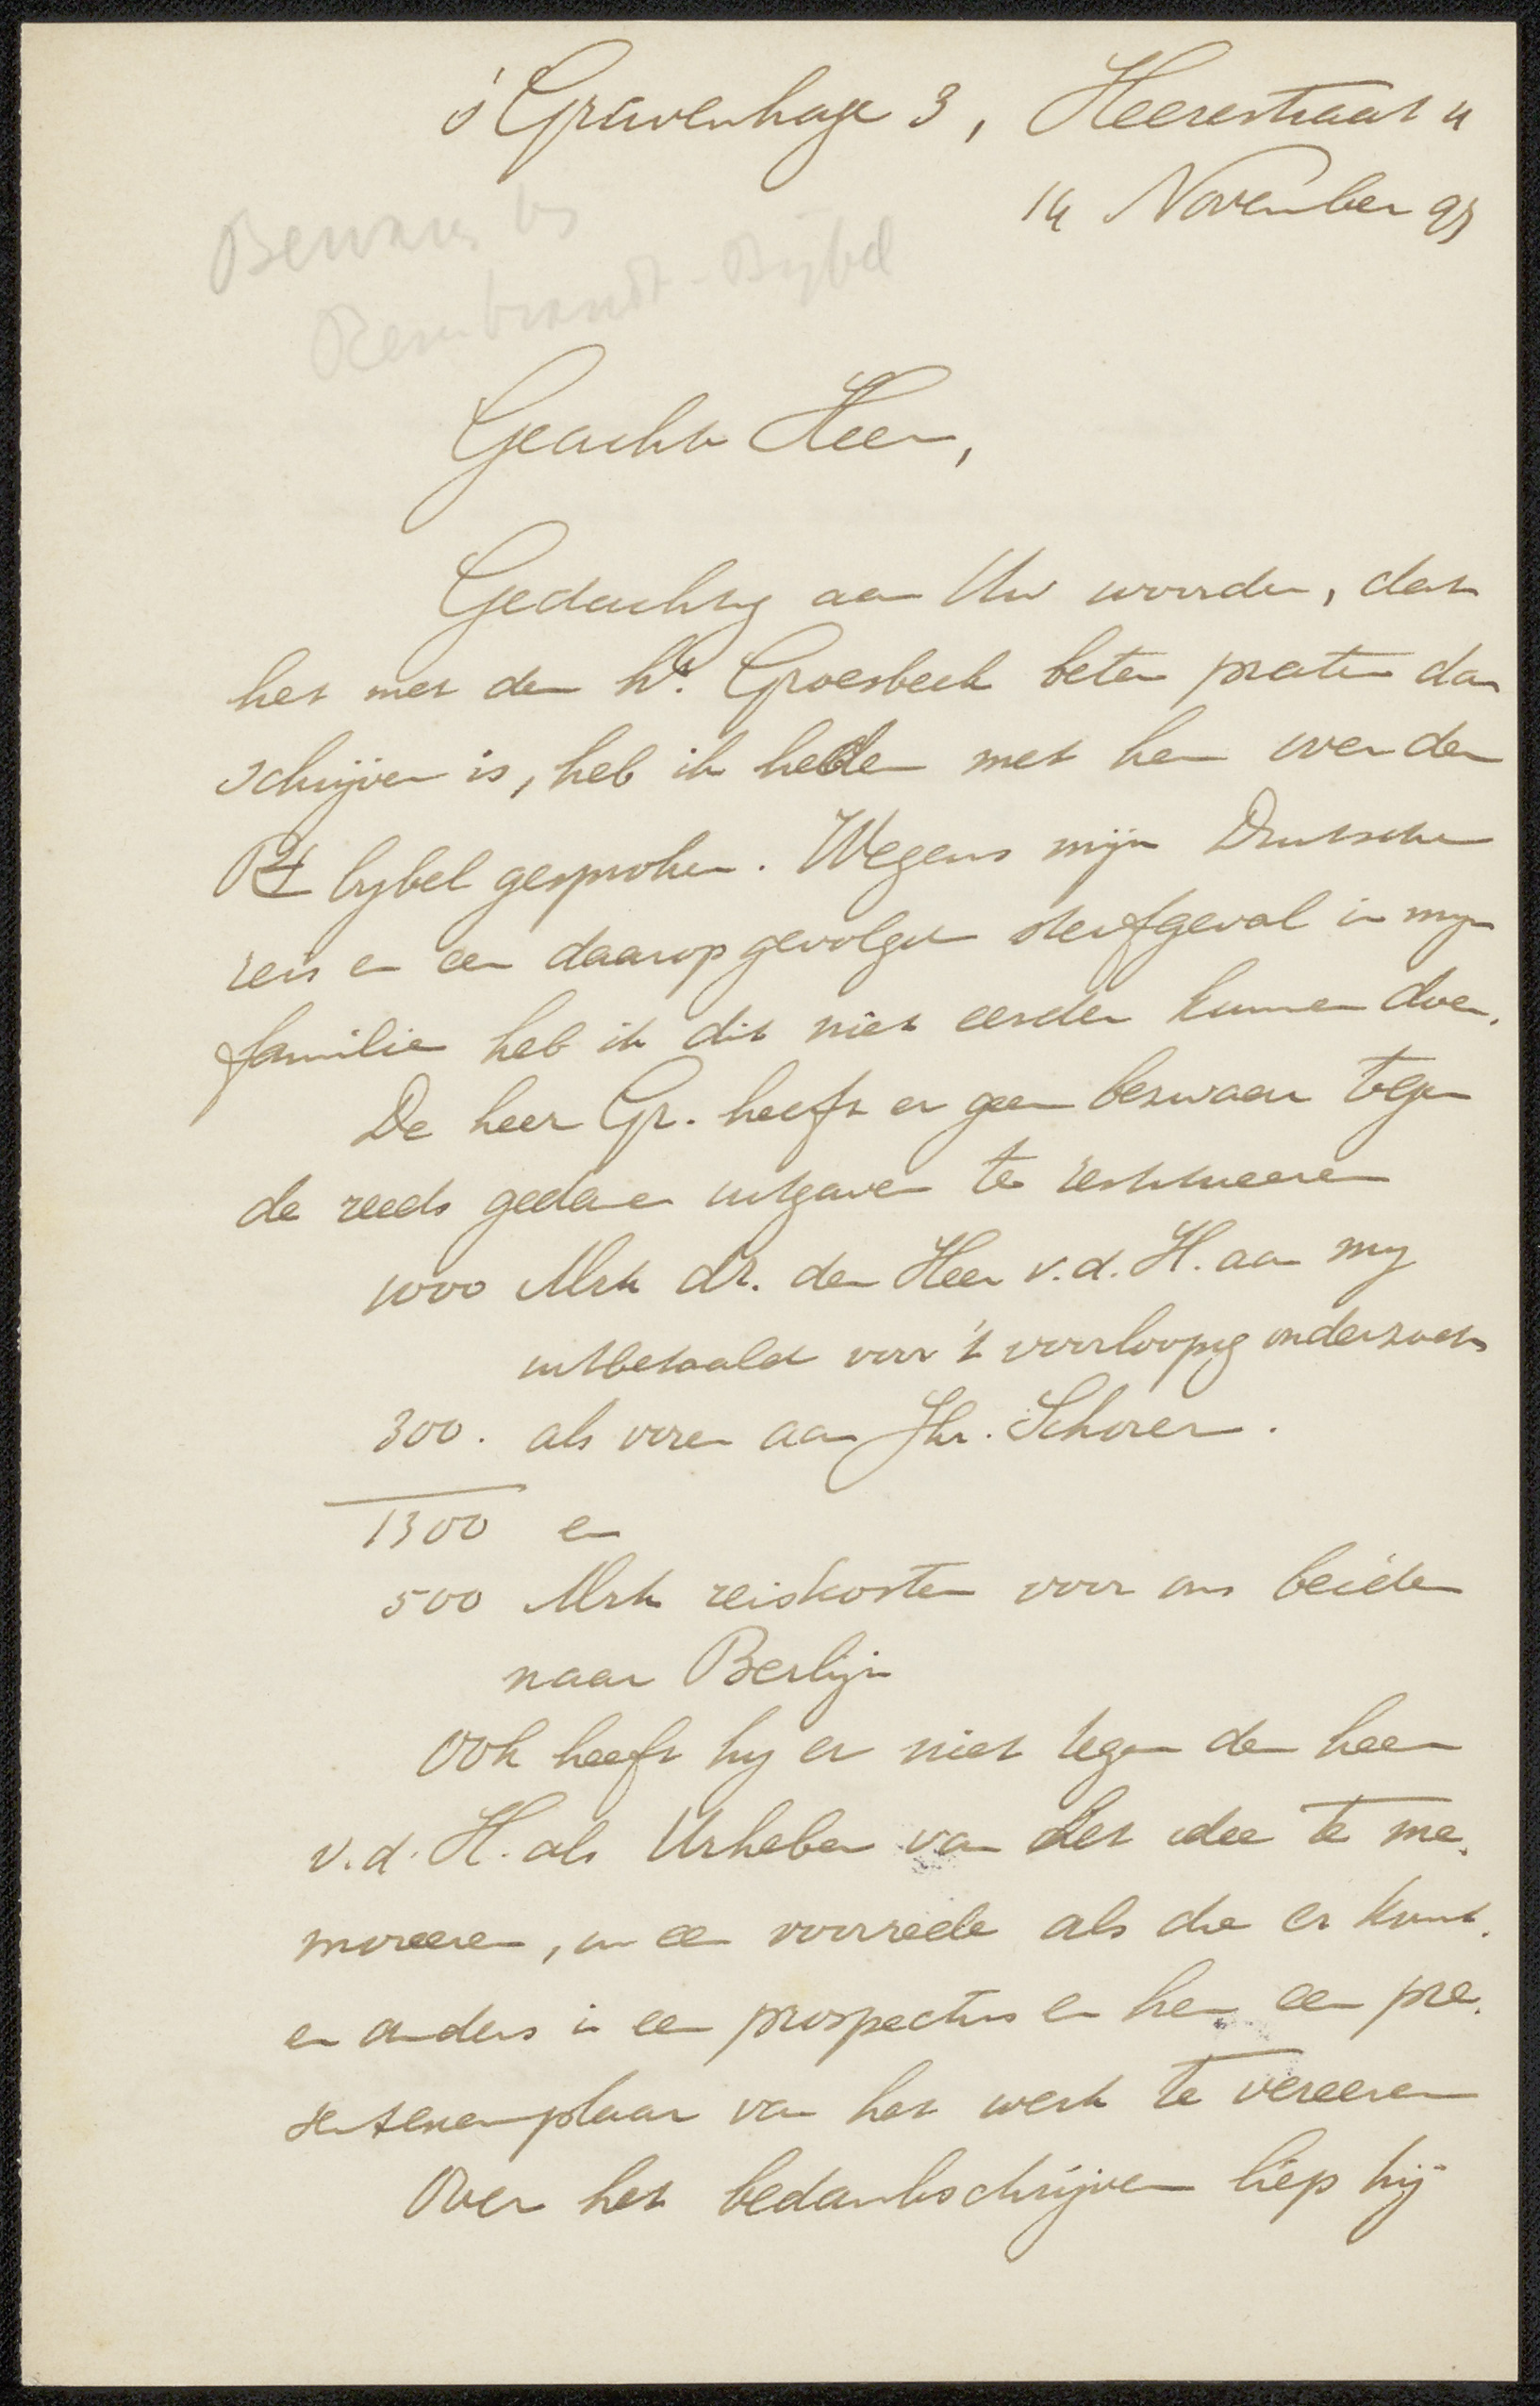 's Gravenhage 3, Heerestraat 4
14 November 95
Bewaren bij
Rembrandt-Bijbel
Geachte Heer,
Gedachtig aan Uw woorden, dat
het met den hr. Groesbeek beter praten dan
schrijven is, heb ik heden met hem over den
Rt bybel gesproken. Wegens mijn Duitsche
reis en een daarop gevolgd sterfgeval in mijn
familie heb ik dit niet eerder kunnen doen.
De heer Gr. heeft er geen bezwaar tegen
de reeds gedane uitgaven te restitueeren
1000 Mrk dr. den Heer v.d. H. aan my
uitbetaald voor 't voorloopig onderzoek
300. als voren aan Jhr. Schorer.
1300 en
500 Mrk reiskosten voor ons beiden
naar Berlijn
Ook heeft hy er niet tegen den heer
v.d. H. als Urheber van het idee te me-
moreeren, in een voorrede als die er komt
en anders in een prospectus en hem een pre-
sentexemplaar van het werk te vereeren
Over het bedankschrijven liep hij